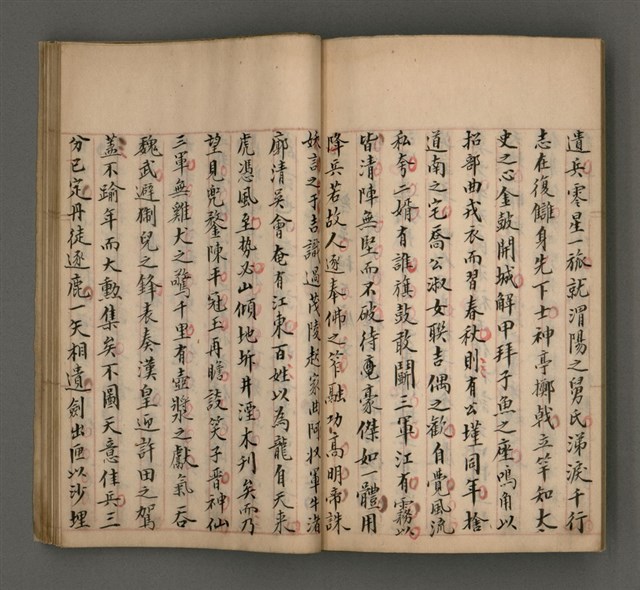 遺兵零星一旅就渭陽之舅氏涕淚千行
志在復讎身先下士神亭擲戟立竿知太
史之心金鼓開城解甲拜子魚之座鳴角以
招部曲戎衣而習春秋則有公瑾同年捨
道南之宅喬公淑女聯吉偶之歡自覺風流
私夸二婿有誰旗鼓敢鬭三軍江有霧以
皆清陣無堅而不破待豪傑如一體用
降兵若故人遂奉佛之窄融功高明帝誅
妖言之于吉識過茂陵起家曲阿收軍牛渚
廓清吳會奄有江東百姓以為龍自天來
虎憑風至势必山傾地坼井湮木刋矣而乃
望見兜鍪陳平冠玉再瞻談笑子晉神仙
三軍無雞犬之驚千里有壺漿之獻氣吞
魏武避猘兒之鋒表奏漢皇迎許田之駕
蓋不踰年而大勳集矣不圖天意佳兵三
分已定丹徒逐鹿一矢相遺劍出匣以沙埋